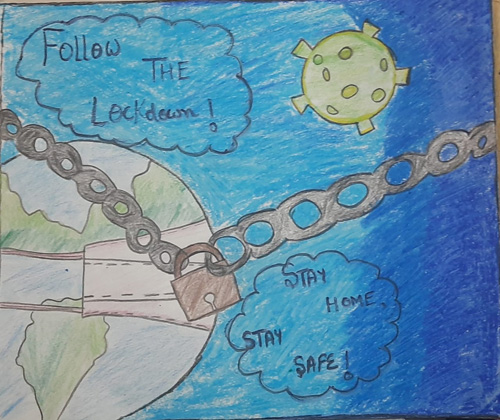 Follow
THE
Lockdown!
STAY
HOME,
STAY
SAFE!